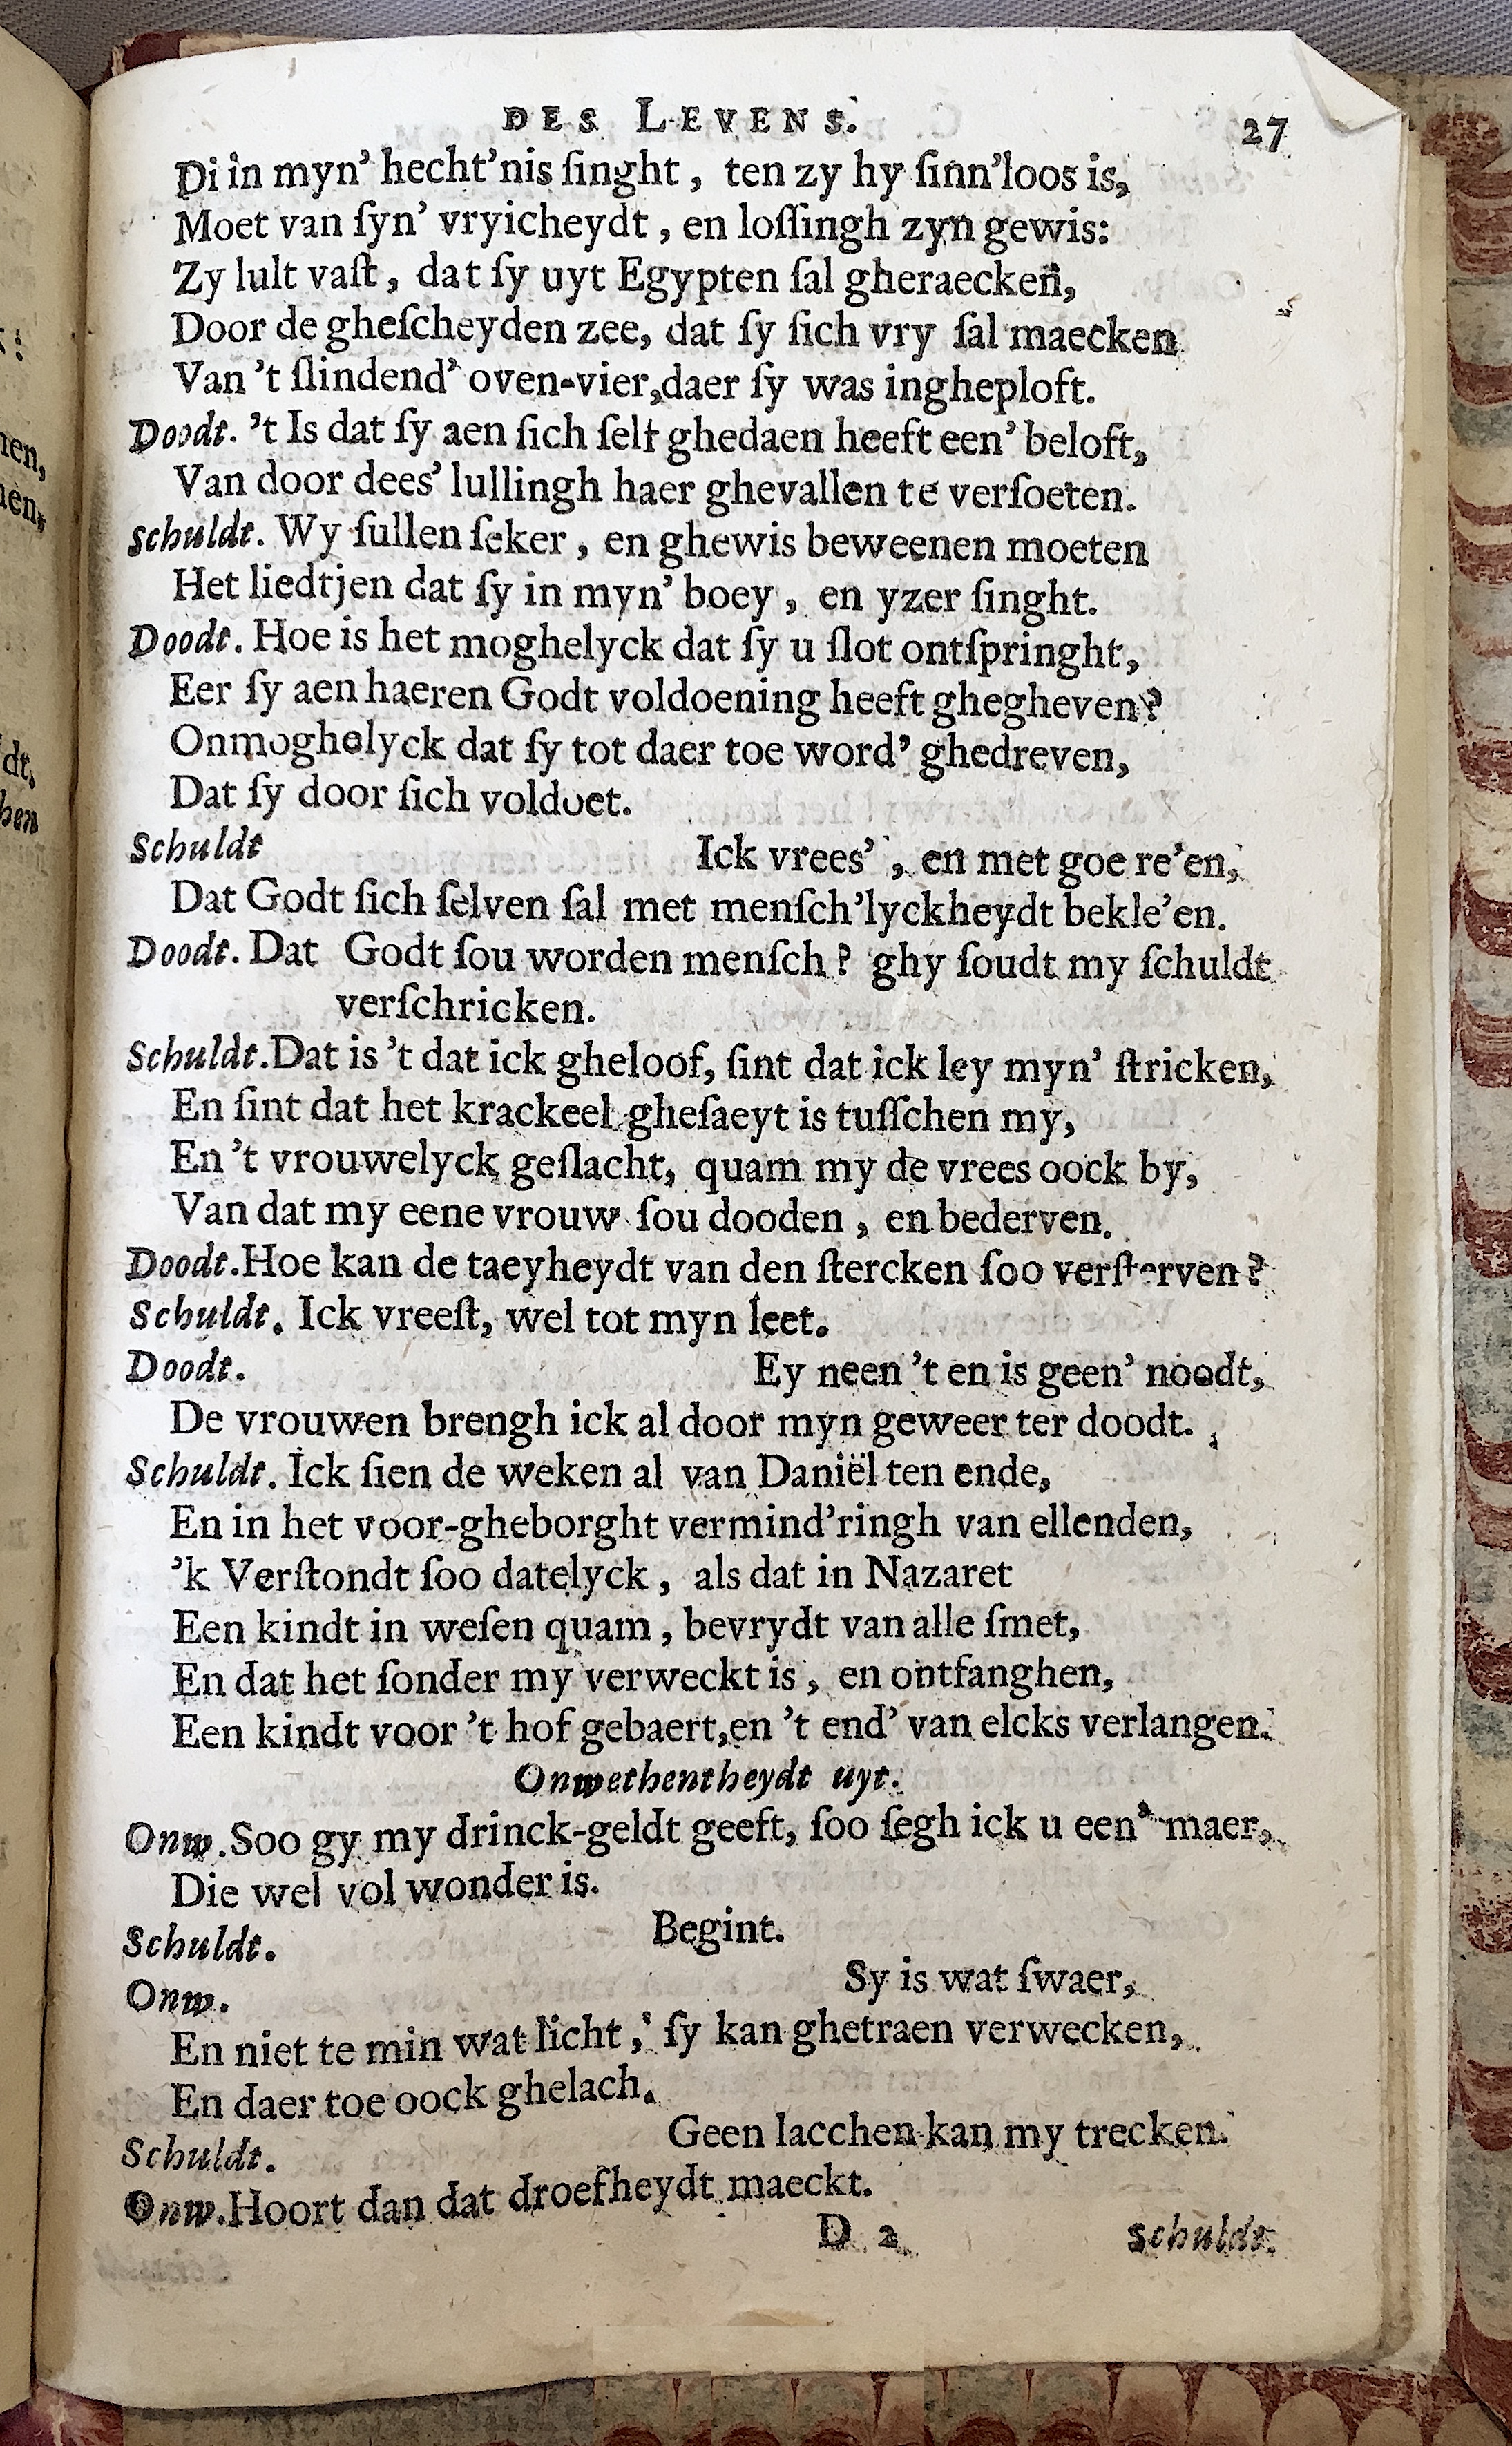 DES LEVENS. 27
Di in myn' hecht'nis ſinght, ten zy hy ſinn'loos is,
Moet van ſyn' vryicheydt, en loſſingh zyn gewis:
Zy lult vaſt, dat ſy uyt Egypten ſal gheraecken,
Door de gheſcheyden zee, dat ſy ſich vry ſal maecken
Van 't ſlindend' oven-vier, daer ſy was ingheploft.
Doodt. 't Is dat ſy aen ſich ſelf ghedaen heeft een' beloft,
Van door dees' lullingh haer ghevallen te verſoeten.
Schuldt. Wy ſullen ſeker, en ghewis beweenen moeten
Het liedtjen dat ſy in myn' boey, en yzer ſinght.
Doodt. Hoe is het moghelyck dat ſy u ſlot ontſpringht,
Eer ſy aen haeren Godt voldoening heeft ghegheven?
Onmoghelyck dat ſy tot daer toe word' ghedreven,
Dat ſy door ſich voldoet.
Schuldt Ick vrees', en met goe re'en,
Dat Godt ſich ſelven ſal met menſch'lyckheydt bekle'en.
Doodt. Dat Godt ſou worden menſch? ghy ſoudt my ſchuldt
verſchricken.
Schuldt. Dat is 't dat ick gheloof, ſint dat ick ley myn' ſtricken,
En ſint dat het krackeel gheſaeyt is tuſſchen my,
En 't vrouwelyck geſlacht, quam my de vrees oock by,
Van dat my eene vrouw ſou dooden, en bederven.
Doodt. Hoe kan de taeyheydt van den ſtercken ſoo verſterven?
Schuldt. Ick vreeſt, wel tot myn leet.
Doodt. Ey neen 't en is geen' noodt,
De vrouwen brengh ick al door myn geweer ter doodt.
Schuldt. Ick ſien de weken al van Daniël ten ende,
En in het voor-gheborght vermind'ringh van ellenden,
'k Verſtondt ſoo datelyck, als dat in Nazaret
Een kindt in weſen quam, bevrydt van alle ſmet,
En dat het ſonder my verweckt is, en ontfanghen,
Een kindt voor 't hof gebaert, en 't end' van elcks verlangen.
Onwethentheydt uyt.
Onw. Soo gy my drinck-geldt geeft, ſoo ſegh ick u een' maer,
Die wel vol wonder is.
Schuldt. Begint.
Onw. Sy is wat ſwaer,
En niet te min wat licht, ſy kan ghetraen verwecken,
En daer toe oock ghelach.
Schuldt. Geen lacchen kan my trecken.
Onw. Hoort dan dat droefheydt maeckt.
D 2 Schuldt.